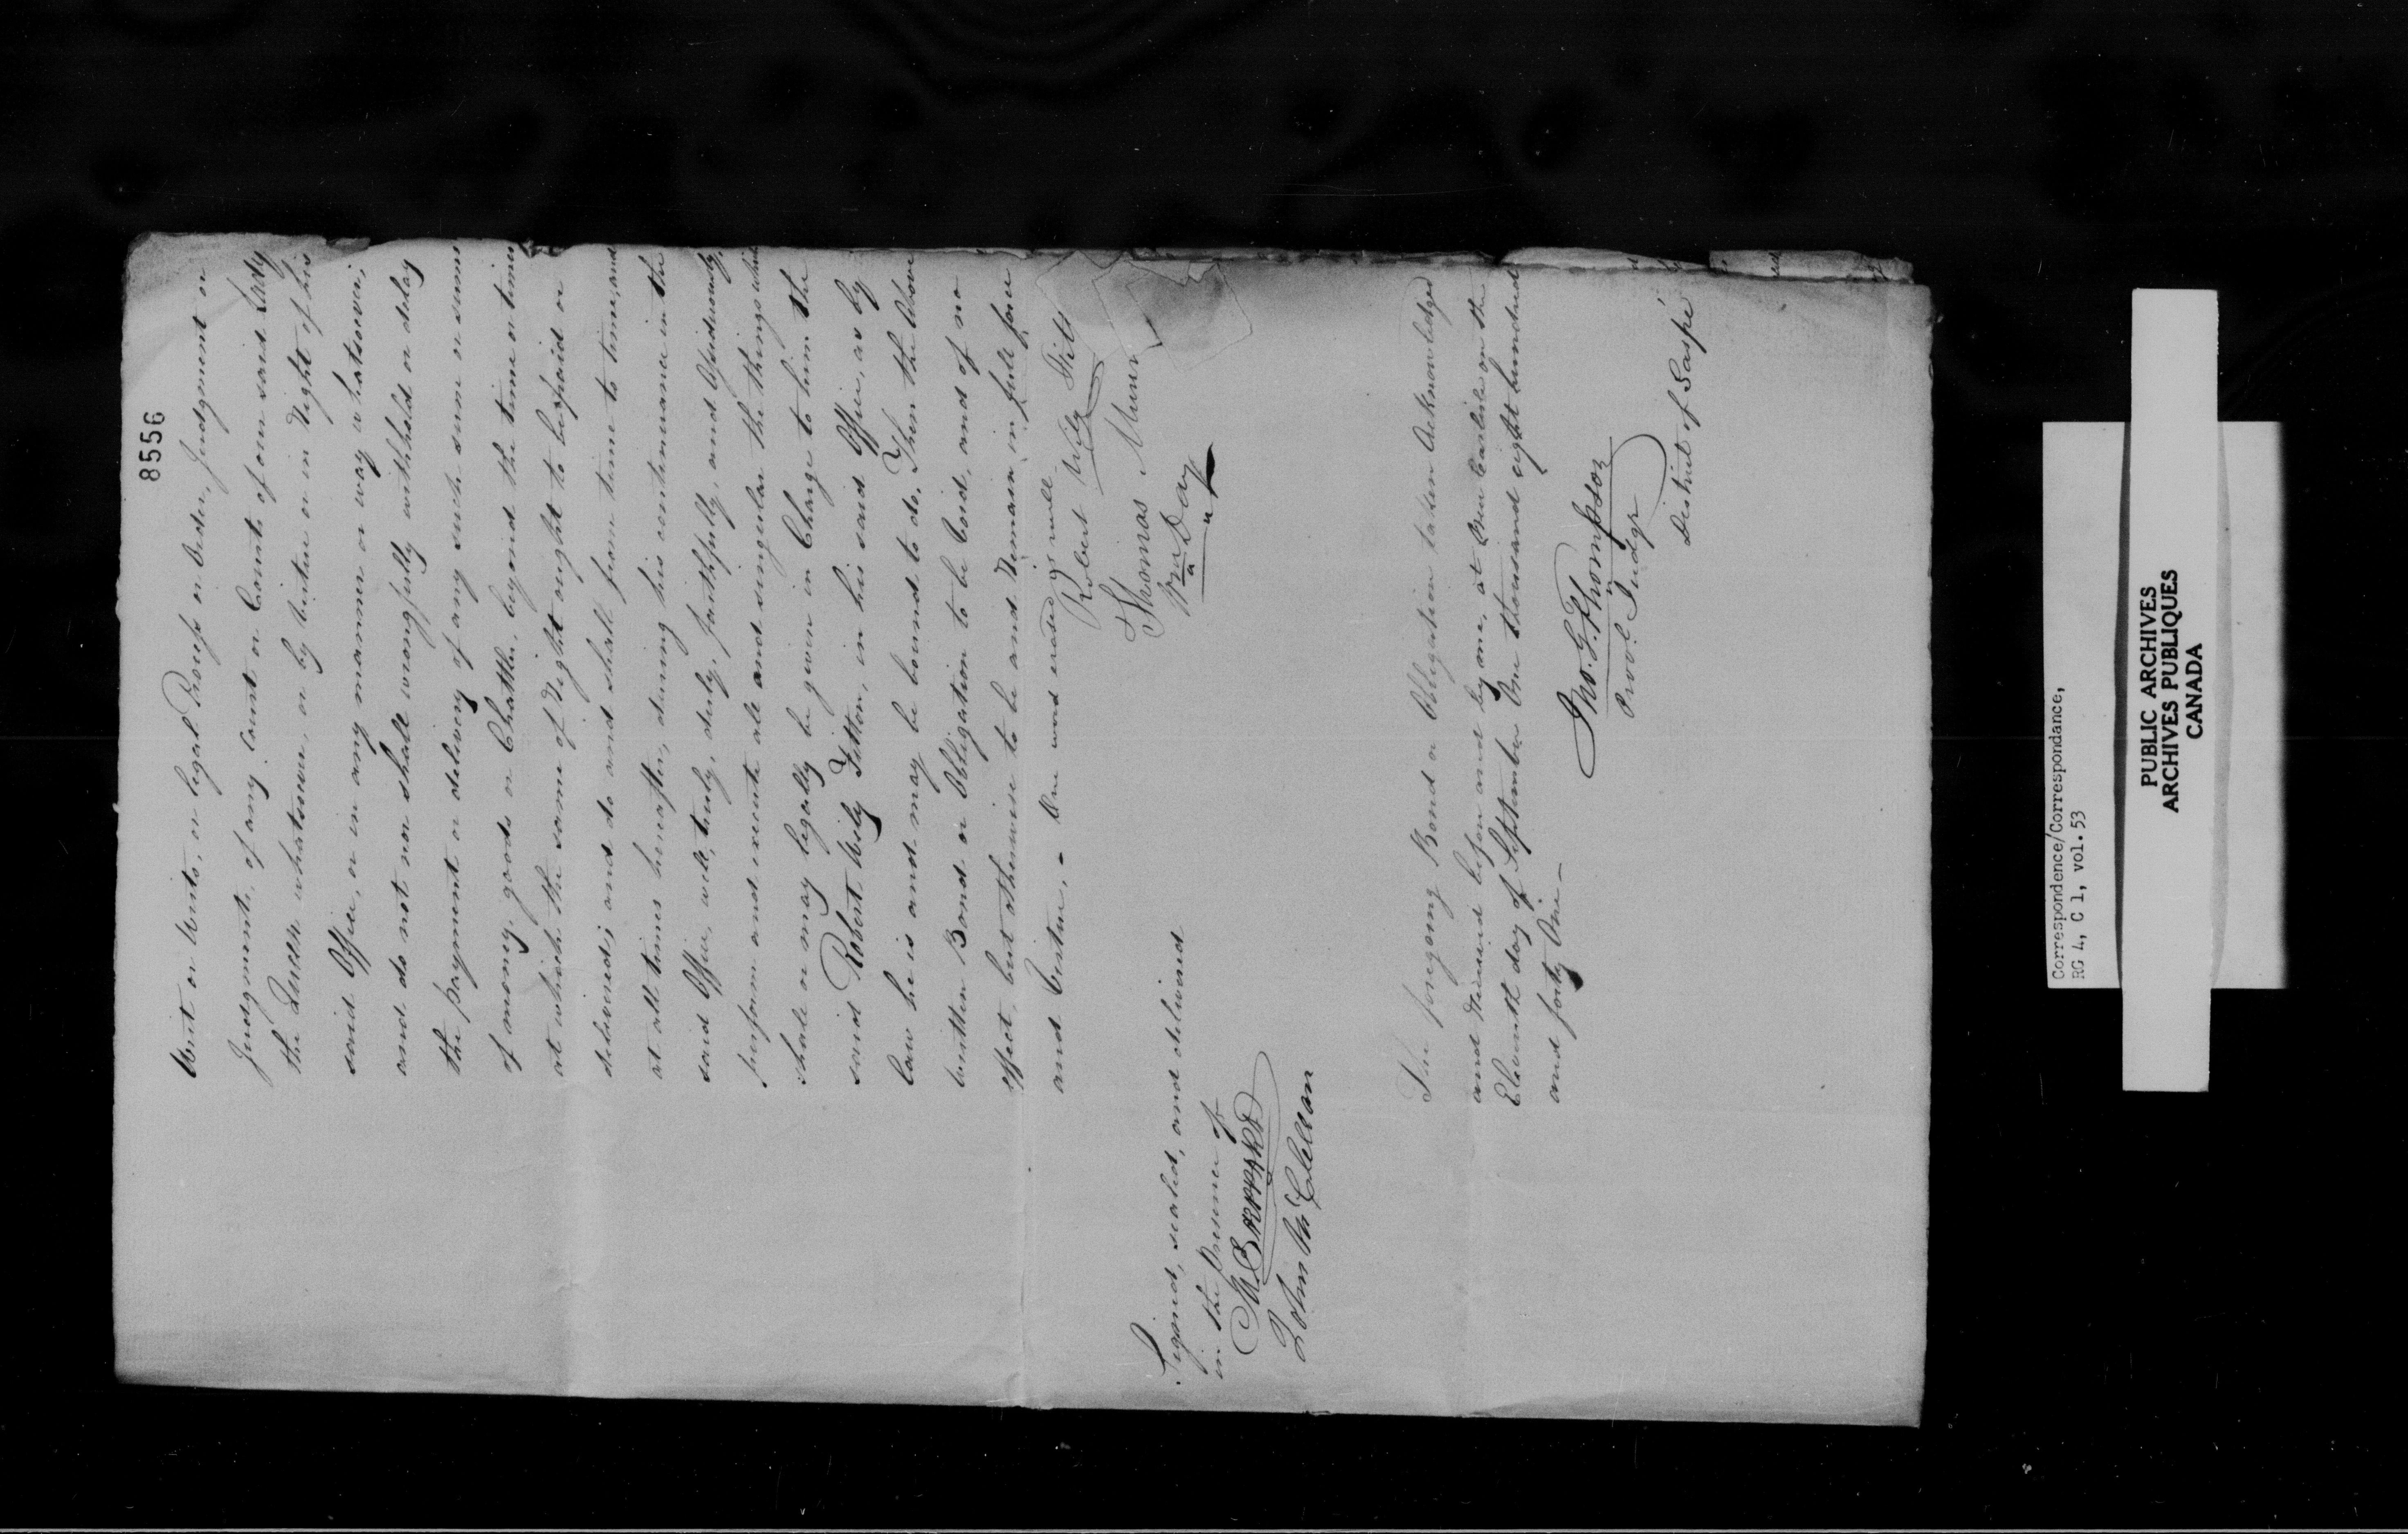 8556
Writ or Writs, or legal Process or Order, Judgment or
Judgments, of any Court or Courts of our said Lady
the Queen whatsoever, or by Virtue or in Right of his
said Office, or in any manner or way whatsoever,
and do not nor shall wrongfully withhold or delay
the payment or delivery of any such sum or sums
of money, goods or Chattles, beyond the time or times
at which the same of Right ought to be paid or
delivered; and do and shall from time to time, and
at all times hereafter, during his continuance in the
said Office, well, truly, duly, faithfully, and Assiduously,
perform and execute all and singular the things which
shall or may legally be given in Charge to him the
said Robert Wily Fitton, in his said Office, as by
law he is and may be bound to do. Then the Above
written Bond or Obligation to be Void, and of no
effect, but otherwise to be and Remain in full force
and Virtue, - One word erased is null
Robert Wily
Thomas Munro
Wm Day
Signed, sealed, and delivered
in the presence of
John McClellan
The foregoing Bond or Obligation taken Acknowledged
and Received before and by me, at New Carlisle on the
Eleventh day of September One thousand eight hundred
and forty One -
Jno. G. Thompson
Provl. Judge
District of Gaspé
Correspondence/Correspondance,
RG 4, C 1, vol. 53
PUBLIC ARCHIVES
ARCHIVES PUBLIQUES
CANADA